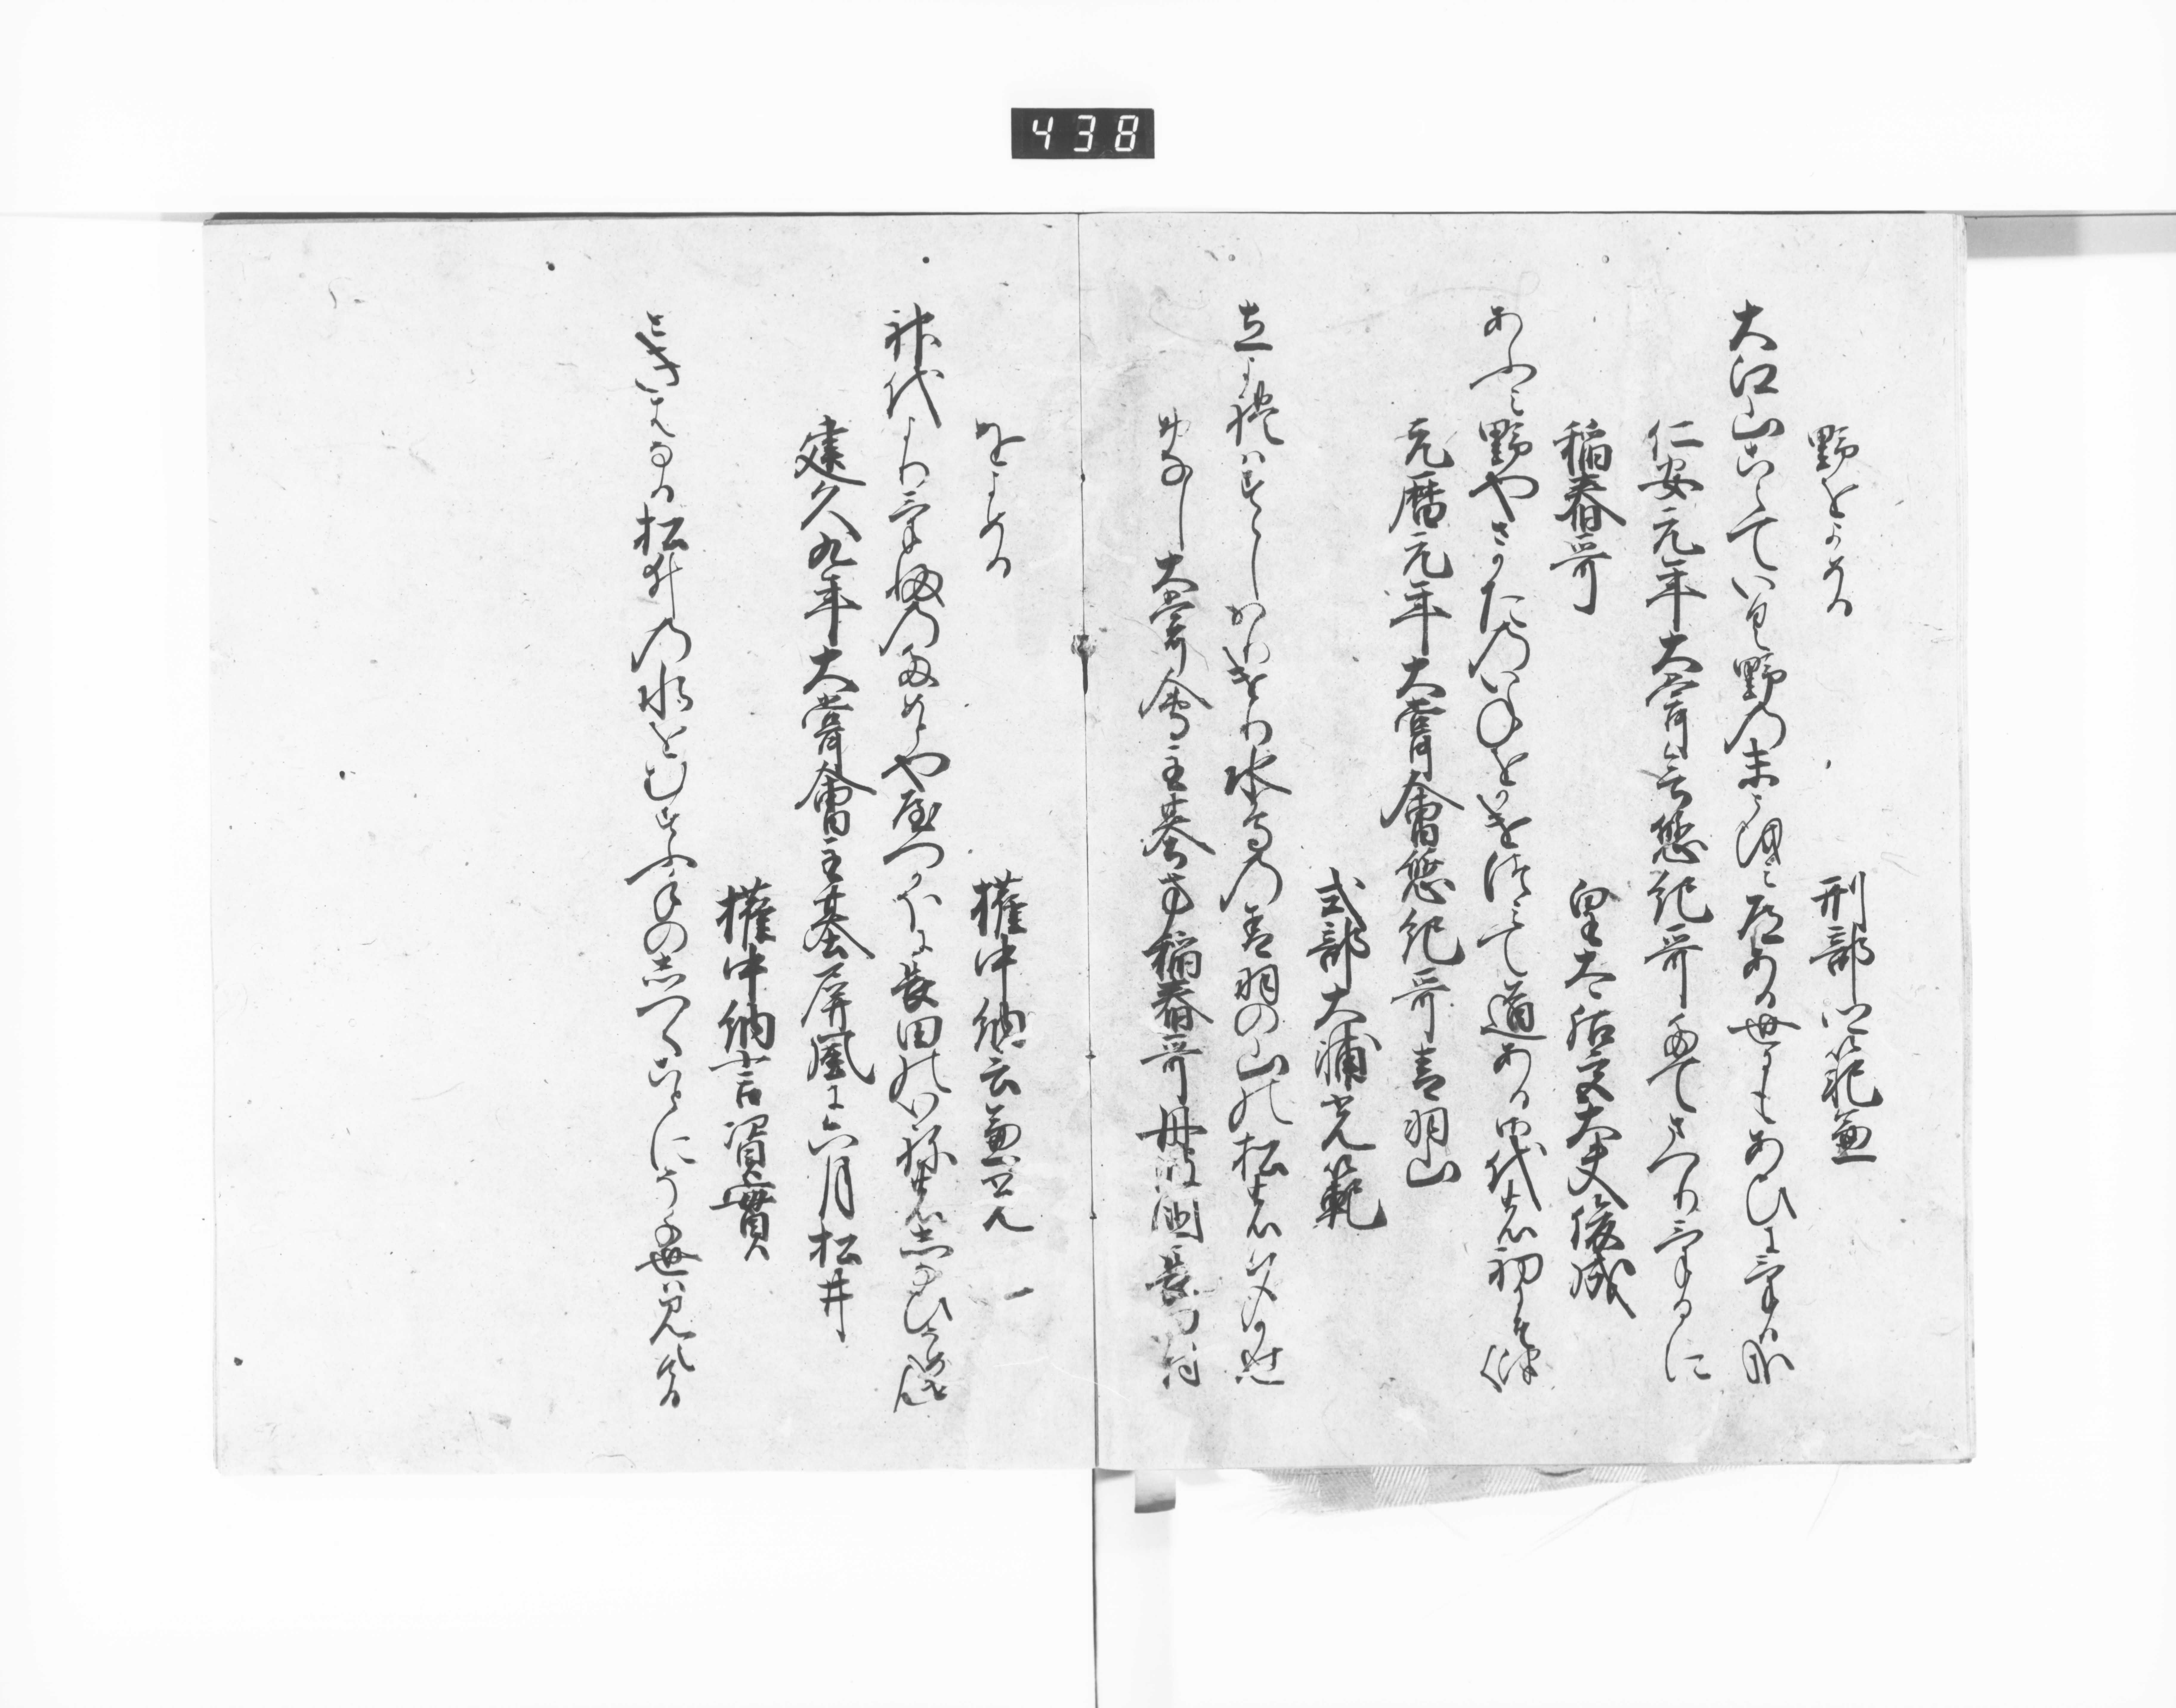 438
野をよめる　刑部卿範兼
大江山こえていく野の末とほみ道ある世にもあひにける哉
仁安元年大嘗會悠紀哥たてまつりけるに
稲舂哥　皇太后宮大夫俊成
あふみ野やさかたのいねをかけつみて道ある御代の初にそつく
元暦元年大嘗會悠紀哥青羽山
式部大輔光範
立よれはすゝしかりけり水鳥の青羽の山の松の夕風
おなし大嘗會主基方稲舂哥丹波国長田村
をよめる　権中納言兼光
神代よりけふのためとや八つかほに長田のいねのしなひそめけむ
建久九年大嘗會主基屏風に六月松井
権中納言資實
ときはなる松井の水をむすふ手のしつくことにそ千世は見えける